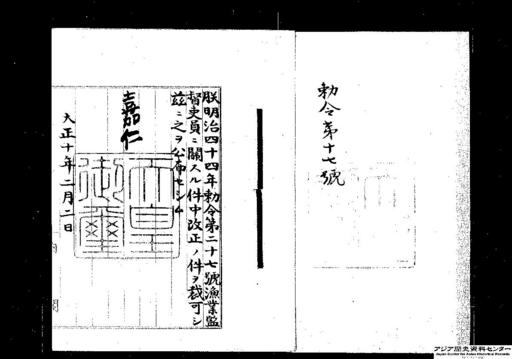 勅令第十七號
朕明治四十四年勅令第二十七號漁業監
督吏員ニ關スル件中改正ノ件ヲ裁可シ
茲ニ之ヲ公布セシム
嘉仁
天皇御璽
大正十年二月二日
アジア歴史資料センター
Japan Center for Asian Historical Records